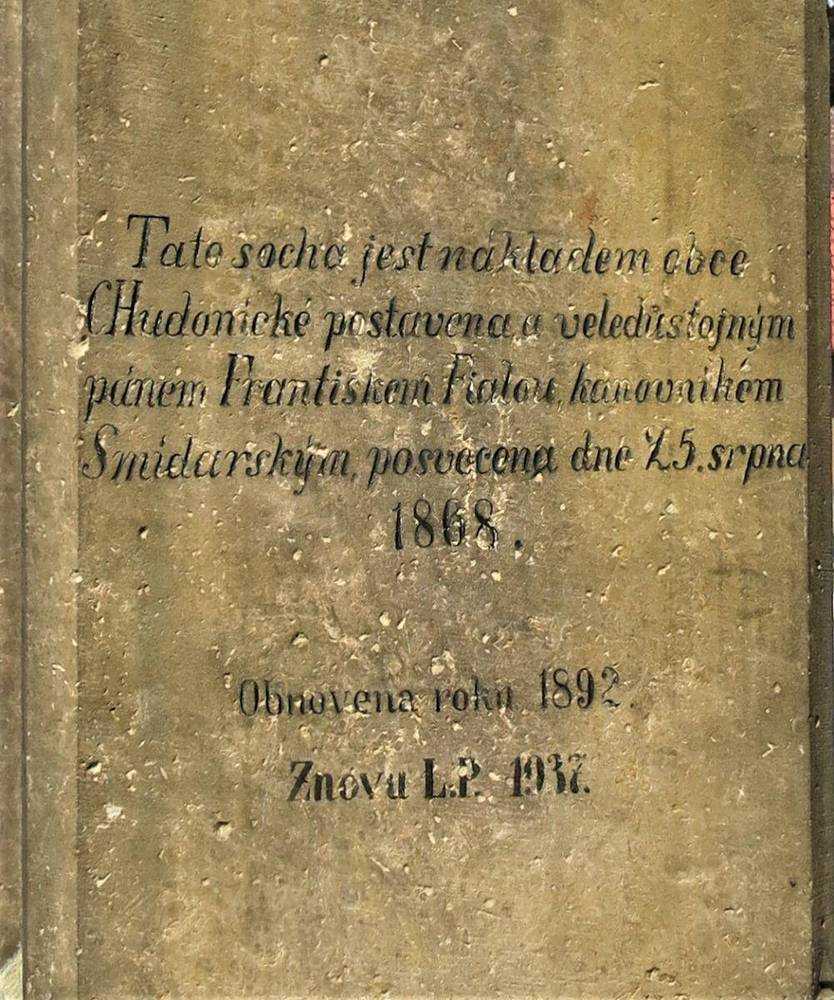 Tato socha jest nákladem obce
CHudonické postavena a veledůstojným
pánem Frantiskem Fialou, kanovnikém
Smidarským, posvecena dne 25. srpna
1868.
Obnovena roku 1892.
Znovu L.P. 1937.